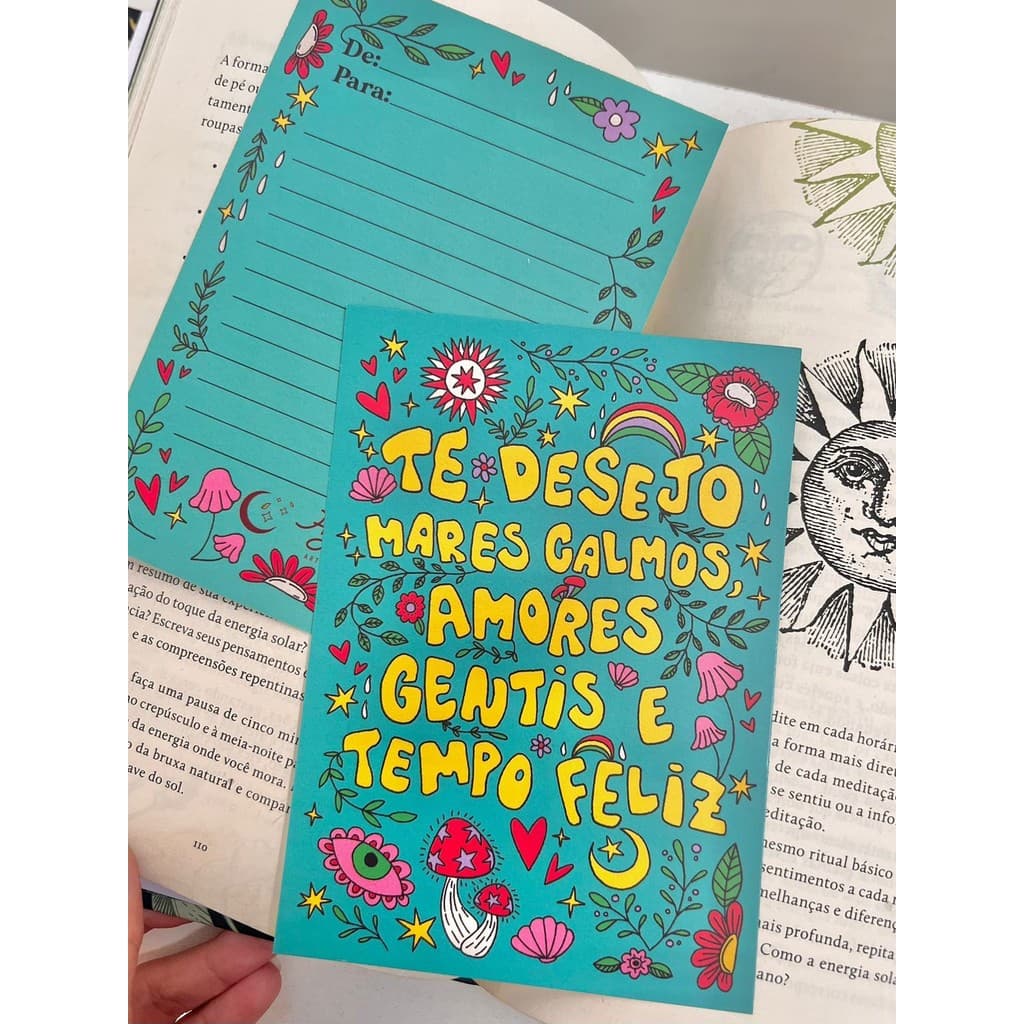 A forma
de pé ou
tament
roupas
De:
Para:
TE DESEJO
MARES CALMOS,
AMORES
GENTIS E
TEMPO FELIZ
resumo de sua
ação do toque da energia solar?
cia? Escreva seus pensamentos
e as compreensões repentinas
faça uma pausa de cinco
no crepúsculo e à meia-noite
da energia onde você mora.
da bruxa natural e
ave do sol.
110
dite em cada horári
a forma mais
de cada meditaçã
se sentiu ou a info
editação.
mesmo ritual básico
sentimentos a cada
melhanças e diferenç
mais profunda, repita
Como a energia sola
ano?